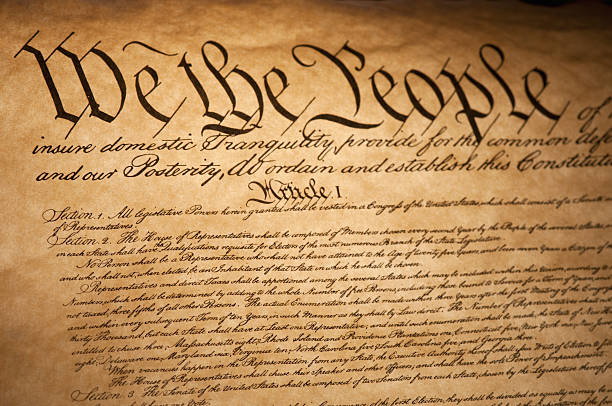 We the People of
insure domestic Tranquility, provide for the common defe
and our Posterity, do ordain and establish this Constitut
Article. I
Section. 1. All legislative Powers herein granted shall be vested in a Congress of the United States, which shall consist of a Senate
of Representatives.
Section. 2. The House of Representatives shall be composed of Members chosen every second Year by the People of the several States,
in each State shall have the Qualifications requisite for Electors of the most numerous Branch of the State Legislature.
No Person shall be a Representative who shall not have attained to the Age of twenty five Years, and been seven Years a Citizen
and who shall not, when elected, be an Inhabitant of that State in which he shall be chosen.
Representatives and direct Taxes shall be apportioned among the several States which may be included within this Union, according to
Numbers, which shall be determined by adding to the whole Number of free Persons, including those bound to Service for a Term of Years
not taxed, three fifths of all other Persons. The actual Enumeration shall be made within three Years after the first Meeting of the Congress
and within every subsequent Term of ten Years, in such Manner as they shall by Law direct. The Number of Representatives shall not
thirty Thousand, but each State shall have at Least one Representative; and until such enumeration shall be made, the State of New
entitled to chuse three, Massachusetts eight, Rhode Island and Providence Plantations one, Connecticut five, New York six, New Jersey
eight, Delaware one, Maryland six, Virginia ten, North Carolina five, South Carolina five, and Georgia three.
When vacancies happen in the Representation from any State, the Executive Authority thereof shall issue Writs of Election to fill
The House of Representatives shall chuse their Speaker and other Officers; and shall have the sole Power of Impeachment.
Section. 3. The Senate of the United States shall be composed of two Senators from each State, chosen by the Legislature thereof
of the first Election, they shall be divided as equally as